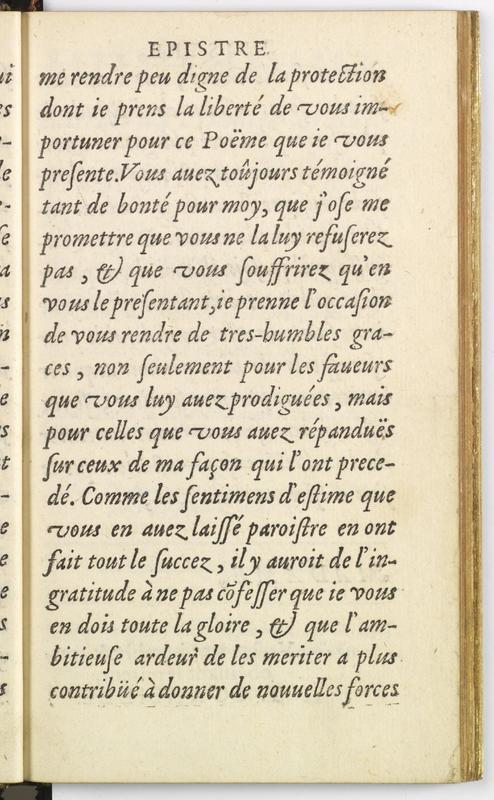 EPISTRE
me rendre peu digne de la protection
dont ie prens la liberté de vous im-
portuner pour ce Poëme que ie vous
preſente. Vous auez toûjours témoigné
tant de bonté pour moy, que j'oſe me
promettre que vous ne la luy refuſerez
pas, & que vous ſouffrirez qu'en
vous le preſentant, ie prenne l'occaſion
de vous rendre de tres-humbles gra-
ces, non ſeulement pour les faueurs
que vous luy auez prodiguées, mais
pour celles que vous auez répanduës
ſur ceux de ma façon qui l'ont prece-
dé. Comme les ſentimens d'eſtime que
vous en auez laiſſé paroiſtre en ont
fait tout le ſuccez, il y auroit de l'in-
gratitude à ne pas cõfeſſer que ie vous
en dois toute la gloire, & que l'am-
bitieuſe ardeur de les meriter a plus
contribüé à donner de nouuelles forces